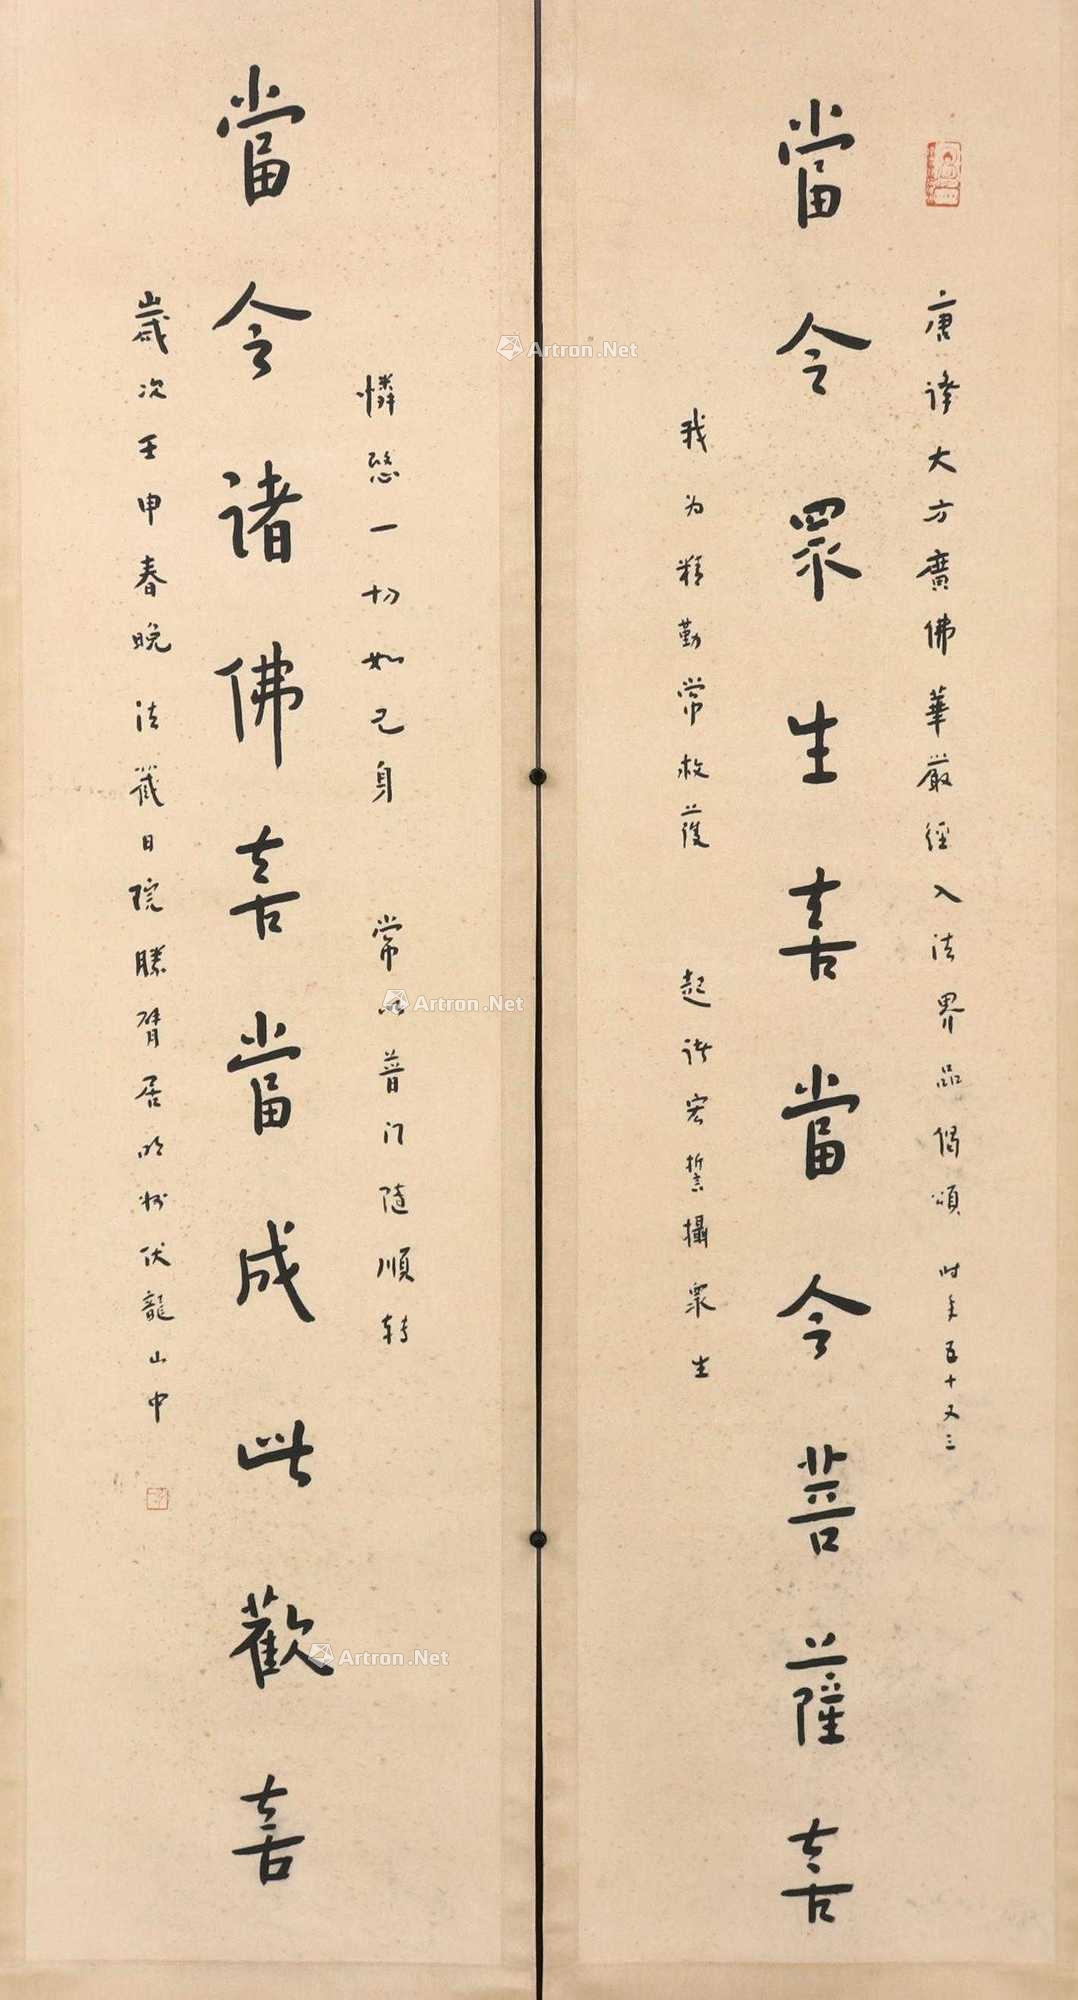 唐譯大方廣佛華嚴經入法界品偈頌 時年五十又三
當令眾生喜當令菩薩喜
我為精勤常救護 起諸宏誓攝眾生
憐愍一切如己身 常以普門隨順轉
當令諸佛喜當成此歡喜
歲次壬申春晚 法藏日院勝臂居明州伏龍山中
Artron.Net
Artron.Net
Artron.Net